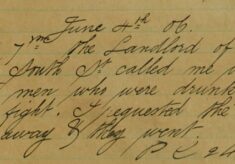 June 4th 06.
7 pm The Landlord of
South St called me
men who were drunk
fight. I requested the
away & they went